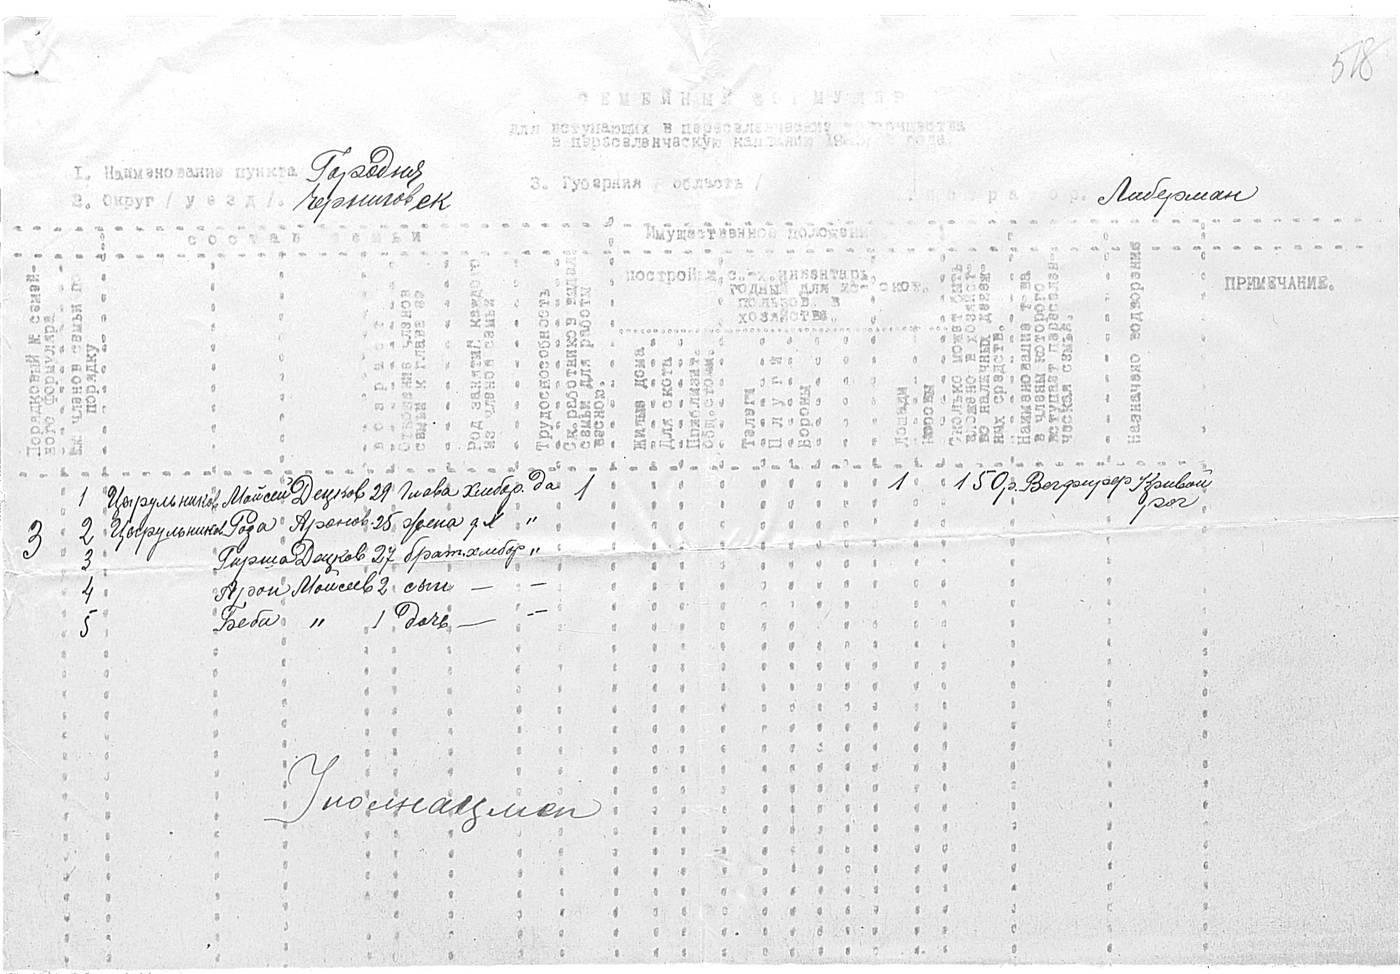 578
СЕМЕЙНЫЙ ФОРМУЛЯР
для вступающих в переселенческие товарищества
в переселенческую кампанию года.
1. Наименование пункта Городня
2. Округ /уезд/. Черниговск
3. Губерния область/
Либерман
состав семьи
Имущественное положение
Порядковый № семейного формуляра
№№ членов семьи по порядку
возраст
Отношение членов семьи к главе ее
Род занятий каждого из членов семьи
Трудоспособность
Ск. работников выдела семьи для работы весною.
постройки
с.-х. инвентарь годный для использов. в хозяйстве.
скот.
Жилые дома
Для скота
Приблизит. общ. стоим.
Телеги
Плуги
Бороны
Лошади
Коровы
Сколько может быть вложено в хозяйство наличных денежных средств.
Наименование т-ва в члены которого вступает переселенческая семья.
Назначено водворение
ПРИМЕЧАНИЕ.
3
1 Цырульников Мойсей 29 Глава хлебор. Да 1 1 150 р. Кривой
рог
2 Цырульников Роза Аронов 25 жена д/х "
3 Гирша 27 брат хлебор "
4 Арон Мойсеев 2 сын — —
5 Беба " 1 Дочь — —
Уполнацмен